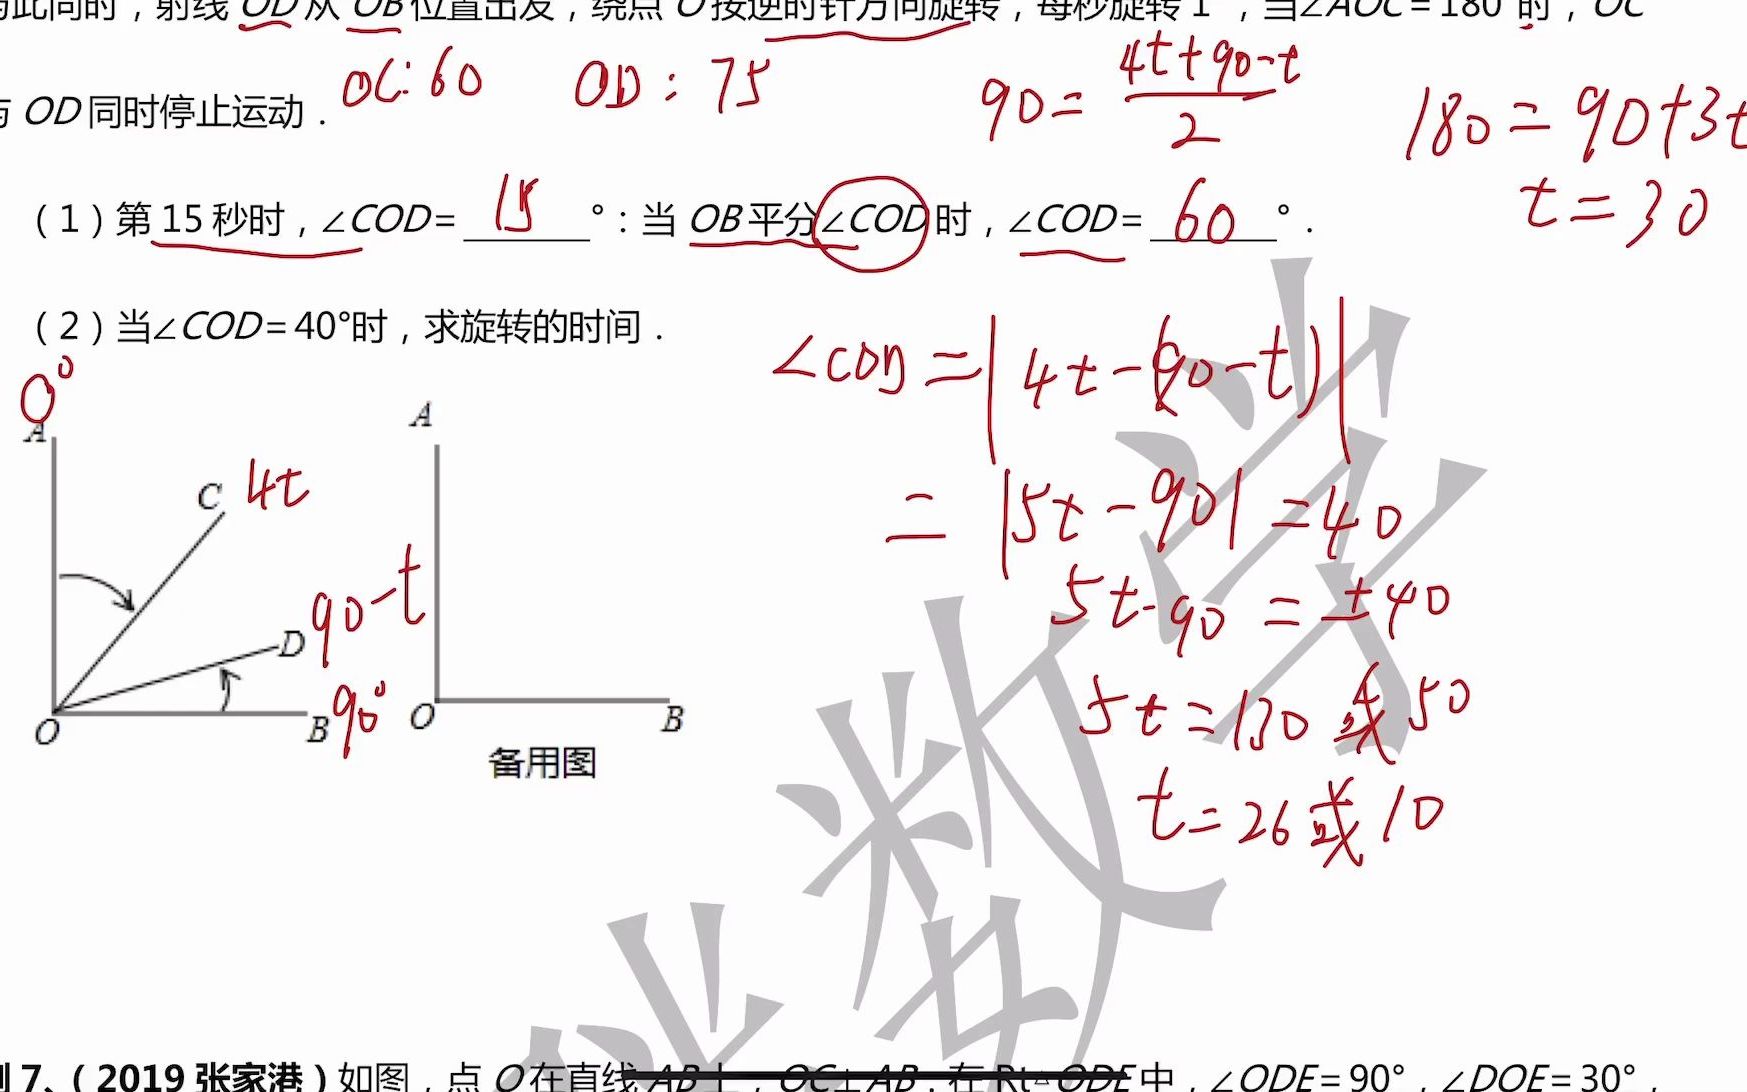 与此同时，射线 OD 从 OB 位置出发，绕点 O 按逆时针方向旋转，每秒旋转 1°，当∠AOC=180°时，OC
与 OD 同时停止运动．
OC:60 OD:75
90=(4t+90-t)/2
180=90+3t
t=30
（1）第 15 秒时，∠COD= 15 °：当 OB 平分∠COD 时，∠COD= 60 °．
（2）当∠COD=40°时，求旋转的时间．
∠COD=|4t-(90-t)|
=|5t-90|=40
5t-90=±40
5t=130或50
t=26或10
0°
A
C 4t
D 90-t
O
B 90°
A
O
B
备用图
数学
例 7、（2019 张家港）如图，点 O 在直线 AB 上，OC⊥AB．在 Rt△ODE 中，∠ODE=90°，∠DOE=30°，